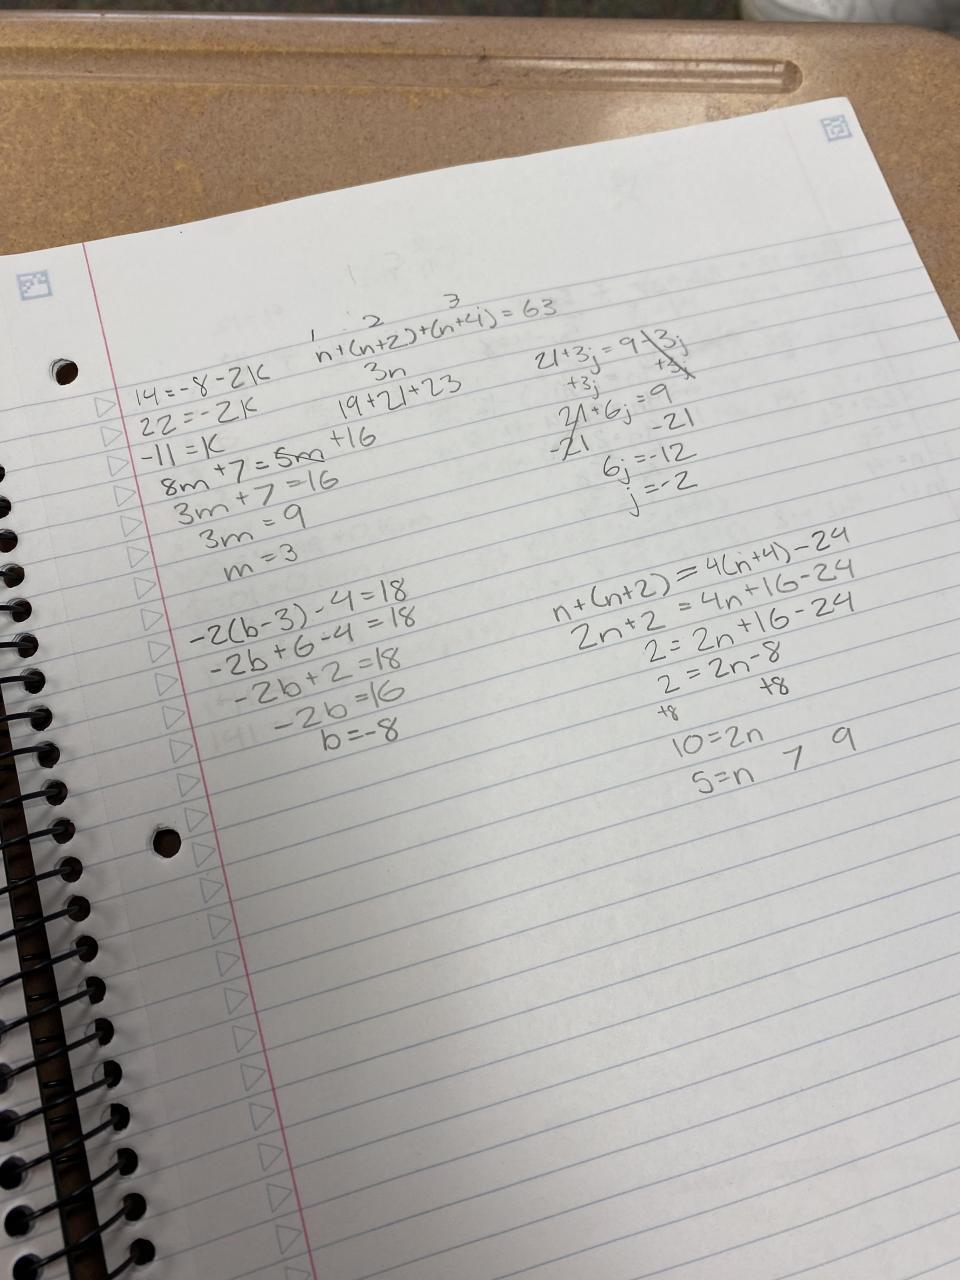 1 2 3
n+(n+2)+(n+4)=63
3n
19+21+23
14=-8-2K
22=-2K
-11=K
8m+7=5m+16
3m+7=16
3m=9
m=3
21+3j=9-3j
+3j +3j
21+6j=9
-21 -21
6j=-12
j=-2
-2(b-3)-4=18
-2b+6-4=18
-2b+2=18
-2b=16
b=-8
n+(n+2)=4(n+4)-24
2n+2=4n+16-24
2=2n+16-24
2=2n-8
+8 +8
10=2n
5=n 7 9